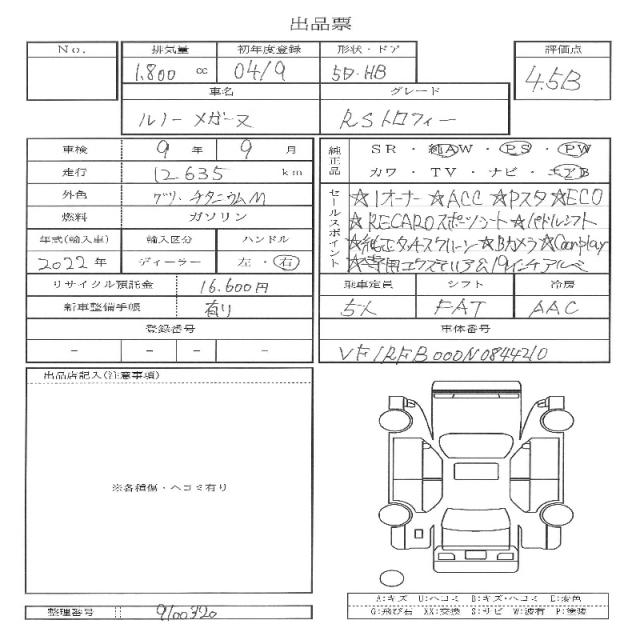 出品票
No. 排気量 初年度登録 形状・ドア 評価点
1,800 cc 04/9 5D・HB 4.5B
車名 グレード
ルノー メガーヌ RSトロフィー
車検 9 年 9 月
走行 12.635 km
外色 グリ・チタニウムM
燃料 ガソリン
年式(輸入車) 輸入区分 ハンドル
2022年 ディーラー 左・右
リサイクル預託金 16.600円
新車整備手帳 有り
登録番号
- - - -
純正品 SR・純AW・PS・PW
カワ・TV・ナビ・エアB
セールスポイント
☆1オーナー☆ACC☆Pスタ☆ECO
☆RECAROスポーツシート☆パドルシフト
☆純正タッチスクリーン☆Bカメラ☆Carplay
☆専用エクステリア&19インチアルミ
乗車定員 シフト 冷房
5人 FAT AAC
車体番号
VF1RFB000N0844210
出品店記入(注意事項)
※各種傷・ヘコミ有り
A:キズ U:ヘコミ B:キズ・ヘコミ C:変色
G:飛び石 XX:交換 S:サビ W:波有 P:塗装
整理番号 9100720